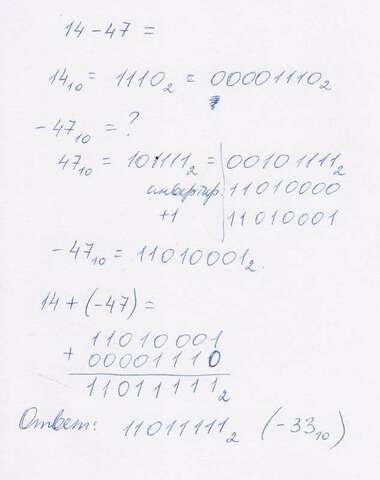 14 - 47 =
14₁₀ = 1110₂ = 00001110₂
-47₁₀ = ?
47₁₀ = 101111₂ = 00101111₂
инвертир. 11010000
+1 11010001
-47₁₀ = 11010001₂.
14 + (-47) =
11010001
+ 00001110
11011111₂
Ответ: 11011111₂ (-33₁₀)